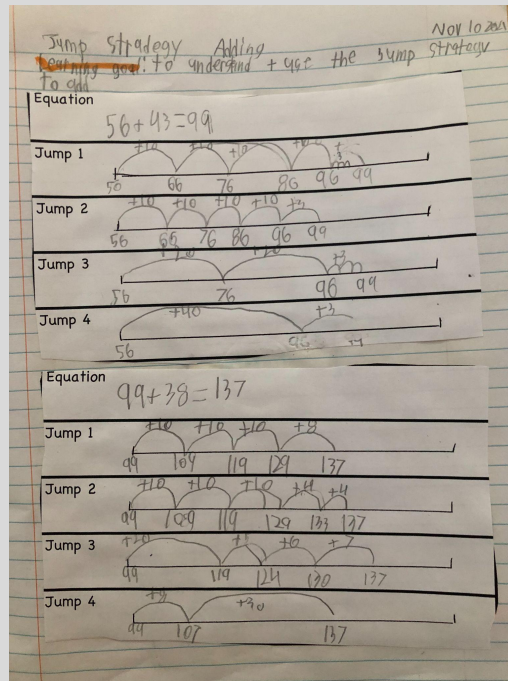 Nov 10
Jump Stradegy Adding
Learning goal: to understand + use the Jump Strategy
to add
Equation
56+43=99
Jump 1
+10 +10 +10 +10
56 66 76 86 96 99
Jump 2
+10 +10 +10 +10 +3
56 66 76 86 96 99
Jump 3
+3
56 76 96 99
Jump 4
+40 +3
56 96
Equation
99+38=137
Jump 1
+10 +10 +10 +8
99 109 119 129 137
Jump 2
+10 +10 +10 +4 +4
99 109 119 129 133 137
Jump 3
+20 +6 +7
99 119 124 130 137
Jump 4
+8 +30
99 107 137